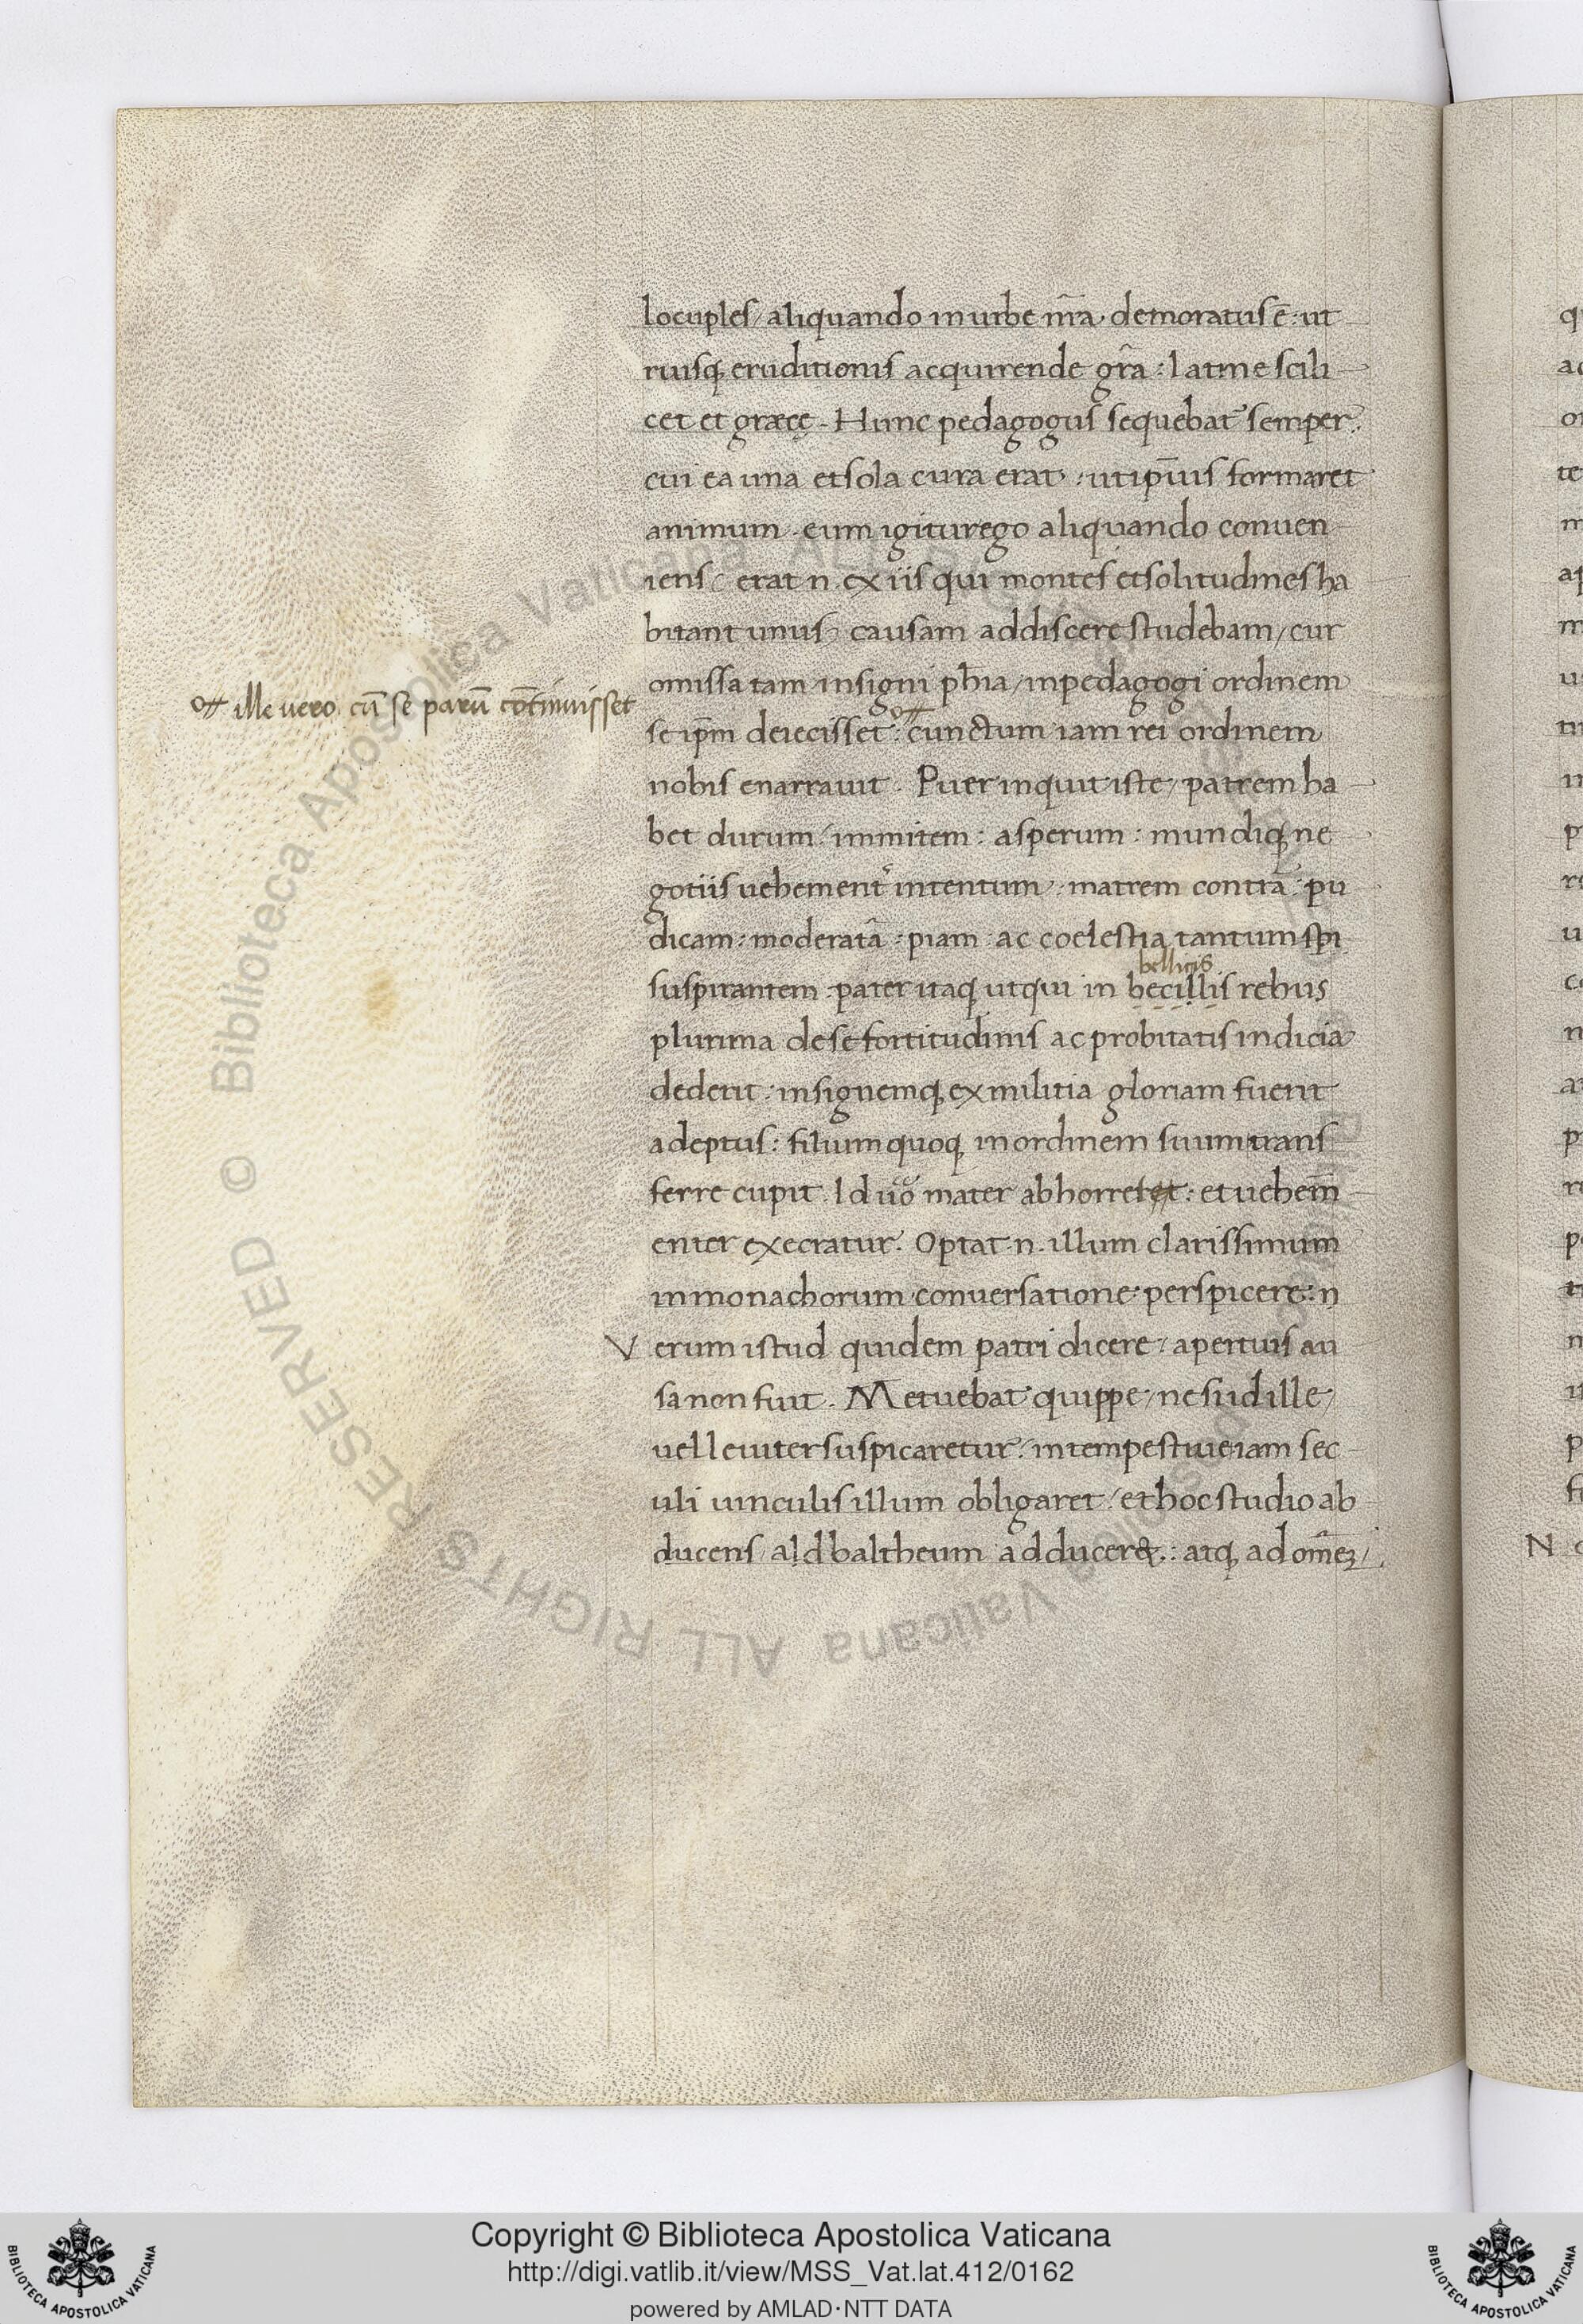 locuples / aliquando in urbe nr̄a · demoratus ē : ut
riusq; eruditionis acquirende gr̄a : latine scili
cet et græcę . Hunc pedagogus sequebat᷑ semper .
cui ea una et sola cura erat : ut ip̄ius formaret
animum . eum igitur ego aliquando conuen
iens / erat n. ex iis qui montes et solitudines ha
bitant unus / causam addiscere studebam / cur
omissa tam insigni ph̄ia / in pedagogi ordinem
ille uero cū se parū cōtinuisset
se ip̄m deiecisset : cunctum iam rei ordinem
nobis enarrauit . Puer inquit iste / patrem ha
bet durum / immitem : asperum : mundiq; ne
gotiis uehement᷑ intentum : matrem contra : pu
dicam : moderatā : piam : ac coelestia tantum spi
bellicis
suspirantem . pater itaq; ut qui in becillis rebus
plurima de se fortitudinis ac probitatis indicia
dederit : insignemq; ex militia gloriam fuerit
adeptus : filium quoq; in ordinem suum trans
ferre cupit . Id uō mater abhorretet : et uehem̄
enter execratur . Optat · n · illum clarissimum
in monachorum conuersatione perspicere : n
Verum istud quidem patri dicere / apertius au
sa non fuit . Metuebat quippe / ne siid ille /
uel leuiter suspicaretur / intempestiue iam sec
uli uinculis illum obligaret / et hoc studio ab
ducens / ald baltheum adducer& : atq; ad om̄eꝫ /
Copyright © Biblioteca Apostolica Vaticana
http://digi.vatlib.it/view/MSS_Vat.lat.412/0162
powered by AMLAD·NTT DATA